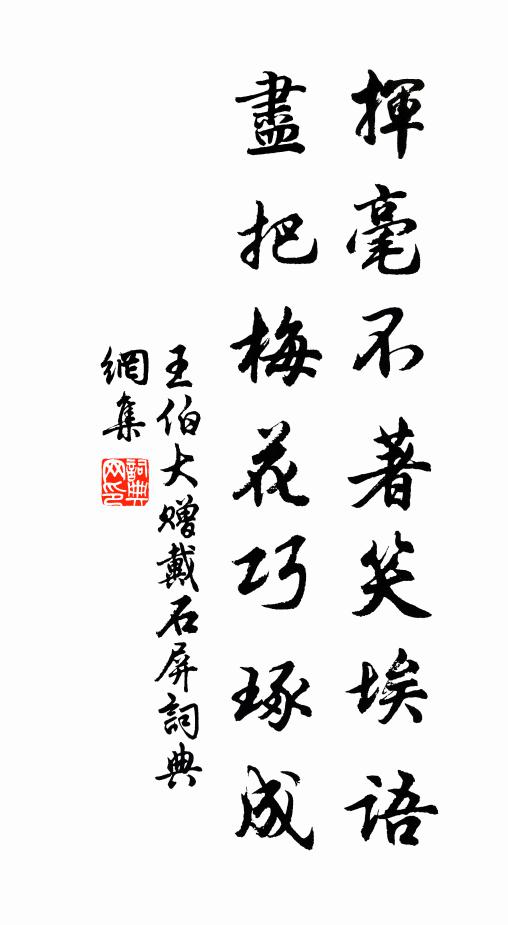 揮毫不著笑埃語
盡把梅花巧琢成
王伯大贈戴石屏詞典
網集
詞典
网印